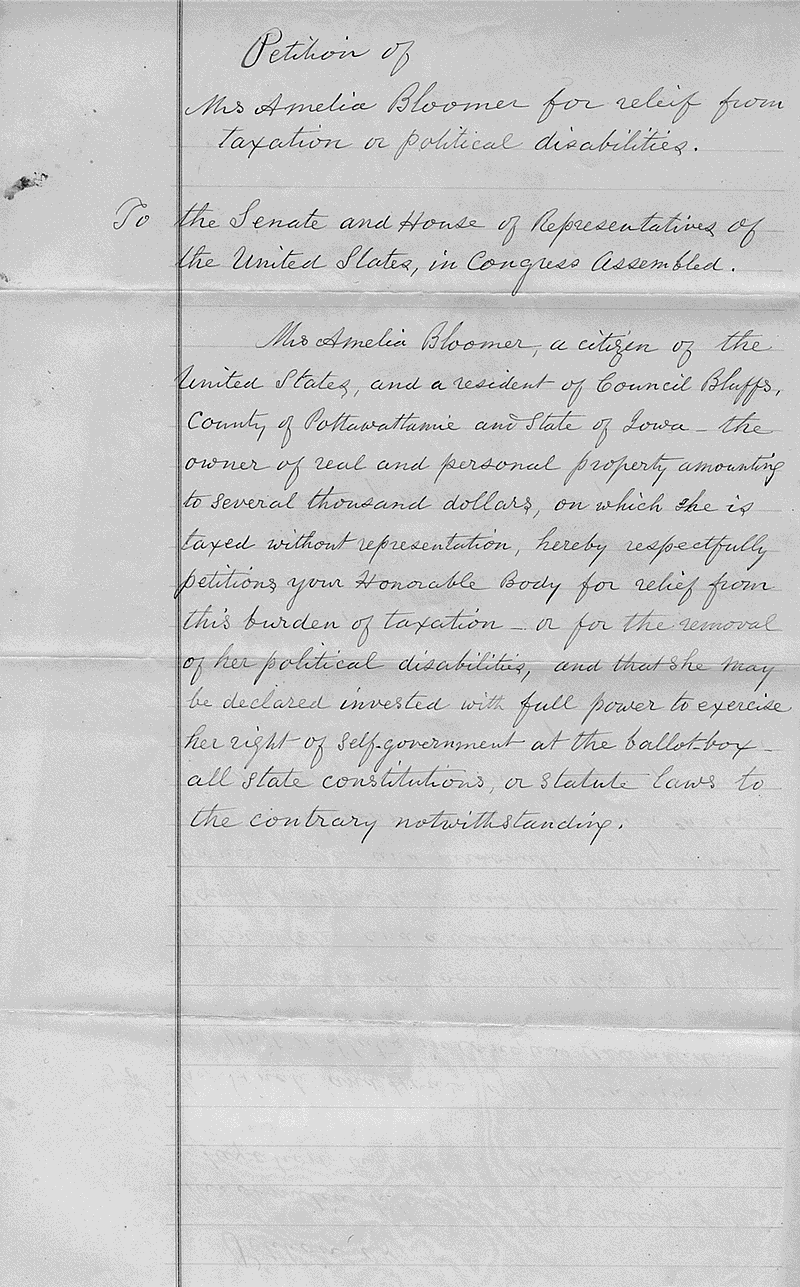 Petition of
Mrs Amelia Bloomer for releif from
taxation or political disabilities.
To the Senate and House of Representatives of
the United States, in Congress Assembled.
Mrs Amelia Bloomer, a citizen of the
United States, and a resident of Council Bluffs,
County of Pottawattamie and State of Iowa - the
owner of real and personal property amounting
to several thousand dollars, on which she is
taxed without representation, hereby respectfully
petitions your Honorable Body for relief from
this burden of taxation - or for the removal
of her political disabilities, and that she may
be declared invested with full power to exercise
her right of self-government at the ballot-box -
all state constitutions, or statute laws to
the contrary notwithstanding.